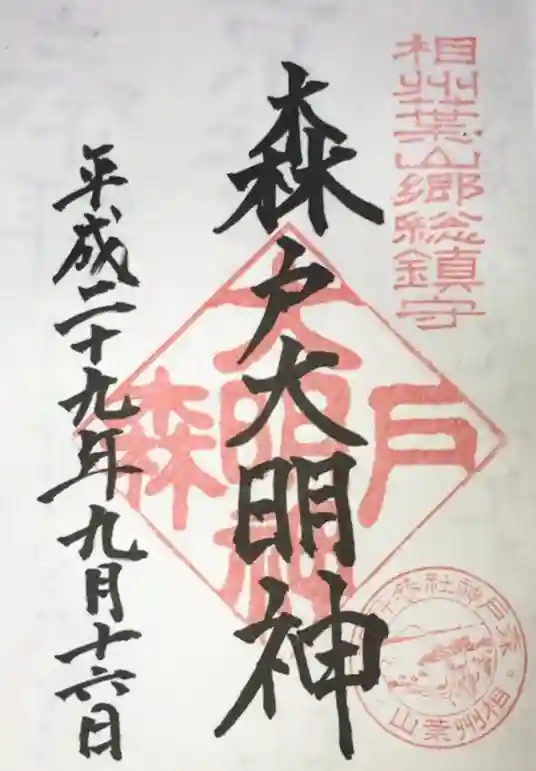 相州葉山郷総鎮守
森戸大明神
平成二十九年九月十六日
森戸
大明神
森戸神社
相州葉山